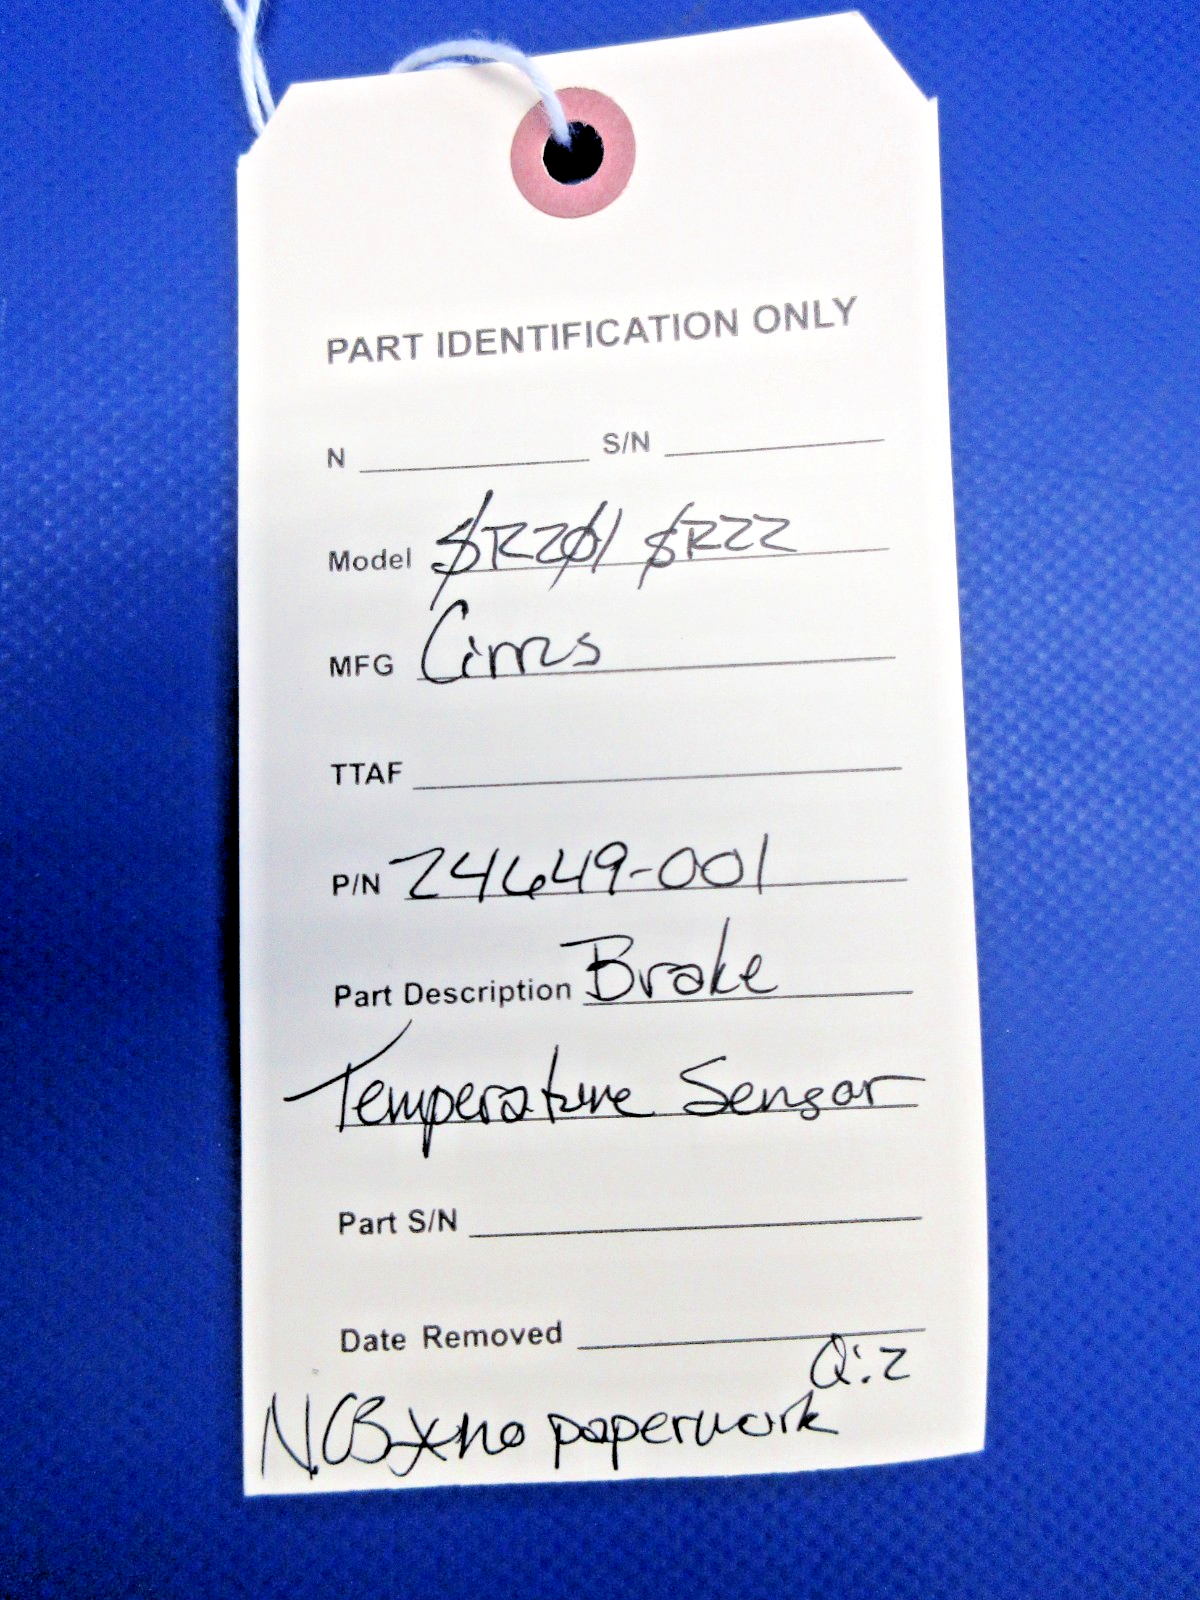 PART IDENTIFICATION ONLY
N S/N
Model SR20/ SR22
MFG Cirrus
TTAF
P/N 24649-001
Part Description Brake
Temperature Sensor
Part S/N
Date Removed
Q:2
no paperwork